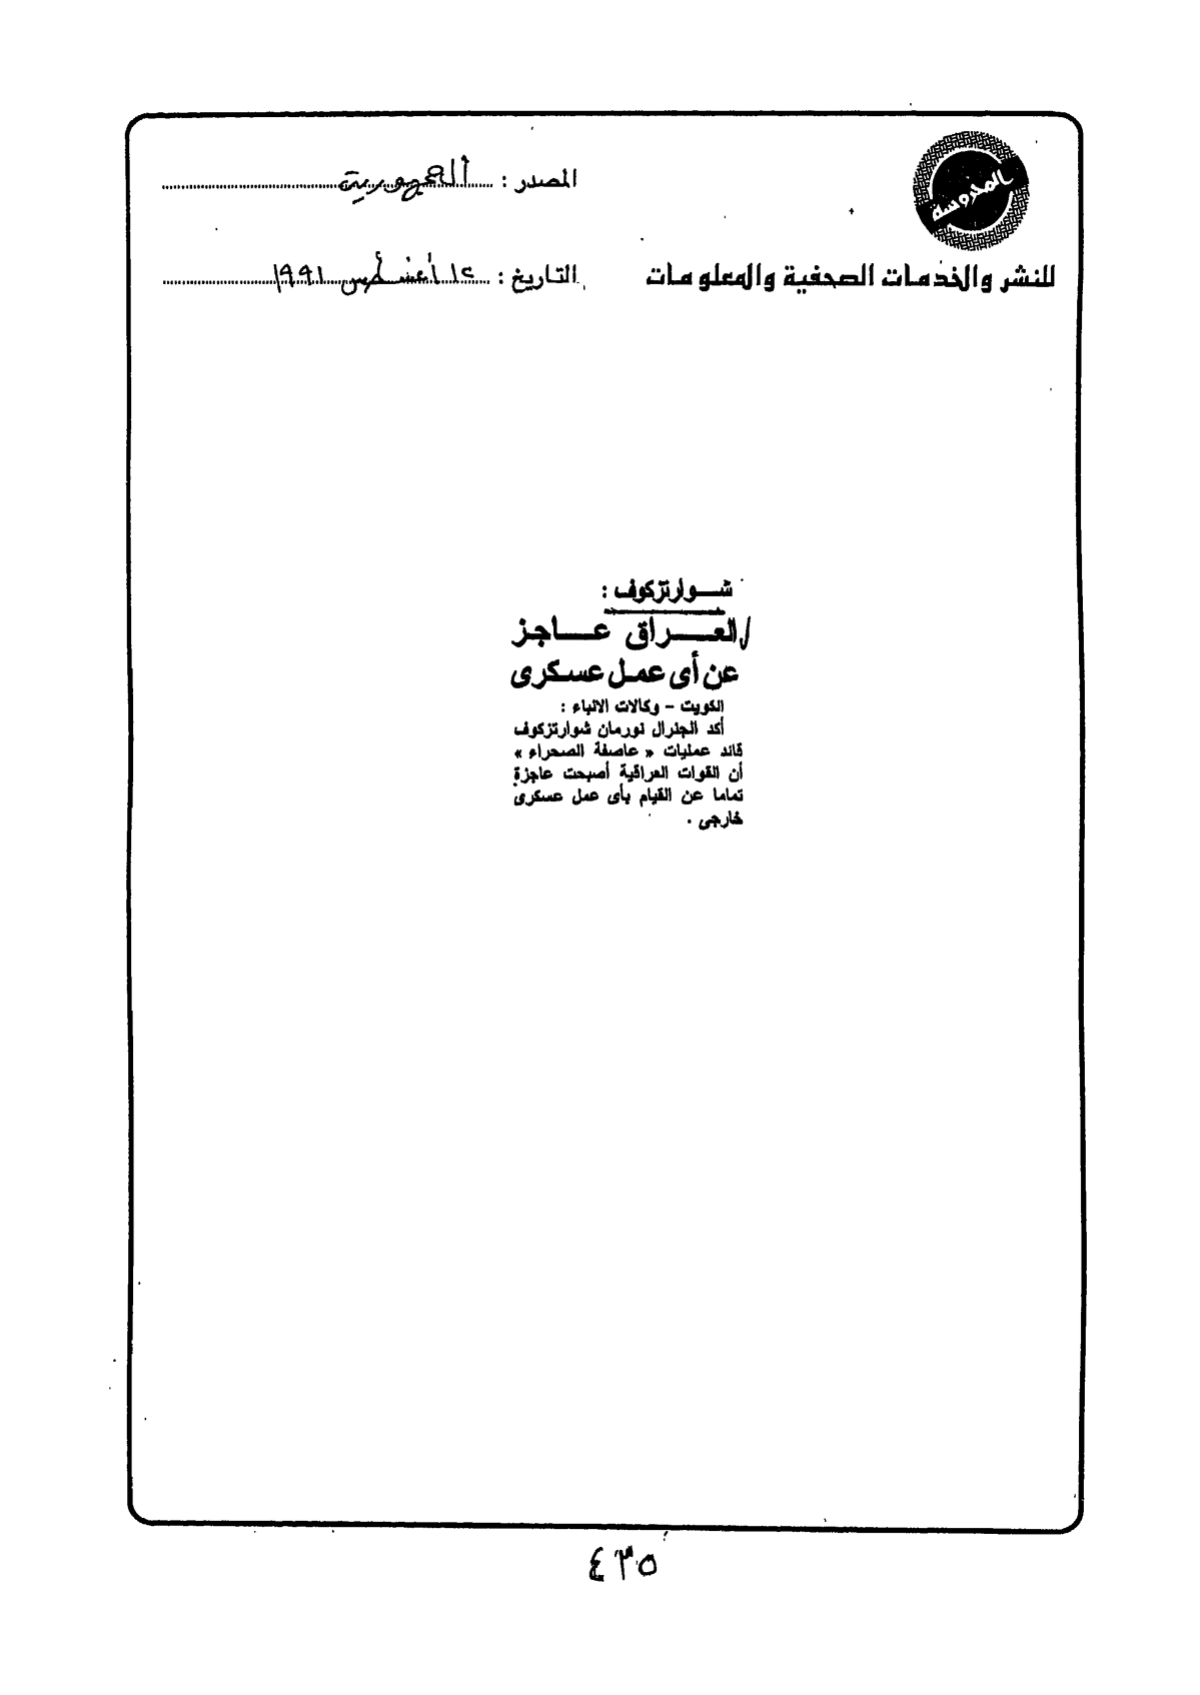 المحروسة
للنشر والخدمات الصحفية والمعلومات
المصدر : الجمهورية
التاريخ : ١٢ أغسطس ١٩٩١
شوارتزكوف :
العراق عاجز
عن أى عمل عسكرى
الكويت - وكالات الانباء :
أكد الجنرال نورمان شوارتزكوف
قائد عمليات « عاصفة الصحراء »
أن القوات العراقية أصبحت عاجزة
تماما عن القيام بأى عمل عسكرى
خارجى .
٤٣٥